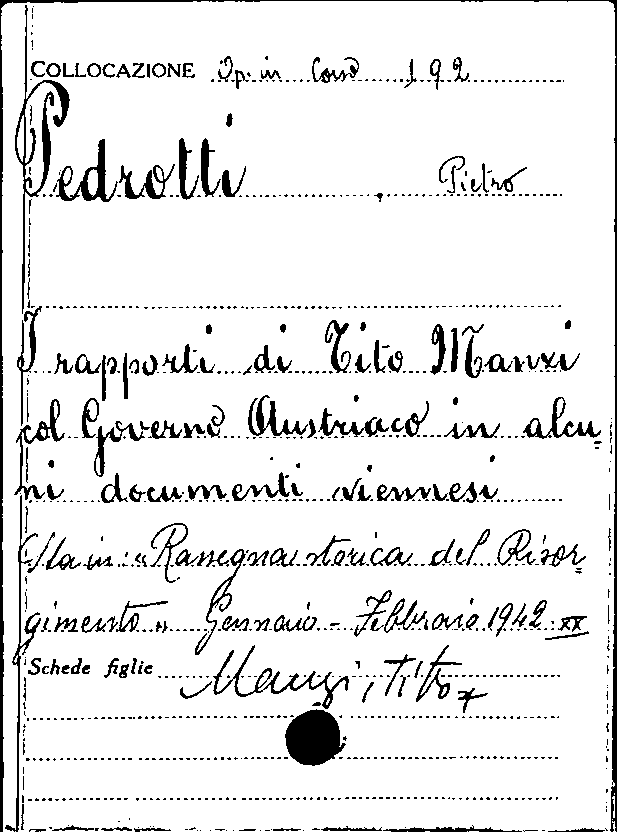 COLLOCAZIONE Op. in Corso 192
Pedrotti , Pietro
I rapporti di Tito Manzi
col Governo Austriaco in alcu=
ni documenti viennesi
Sta in: "Rassegna storica del Risor=
gimento" Gennaio - Febbraio 1942 XX
Schede figlie Manzi, Tito